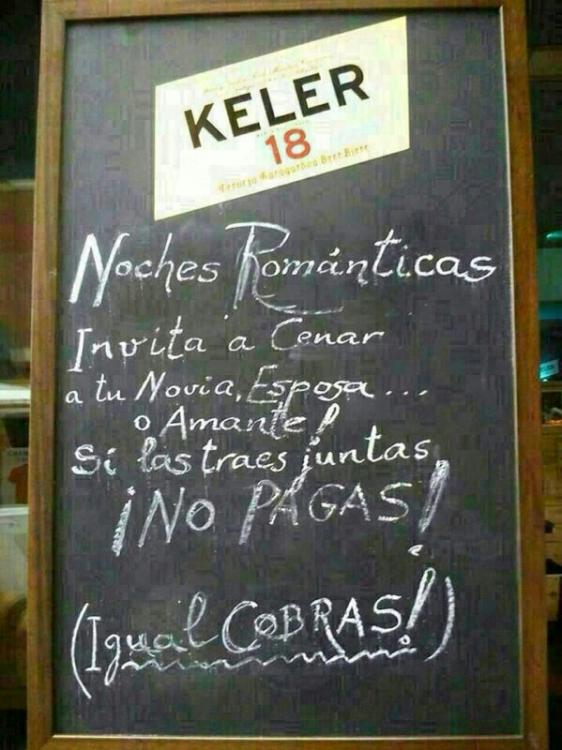 KELER
18
Noches Románticas
Invita a Cenar
a tu Novia, Esposa...
o Amante!
Si las traes juntas
¡NO PAGAS!
(Igual COBRAS!)